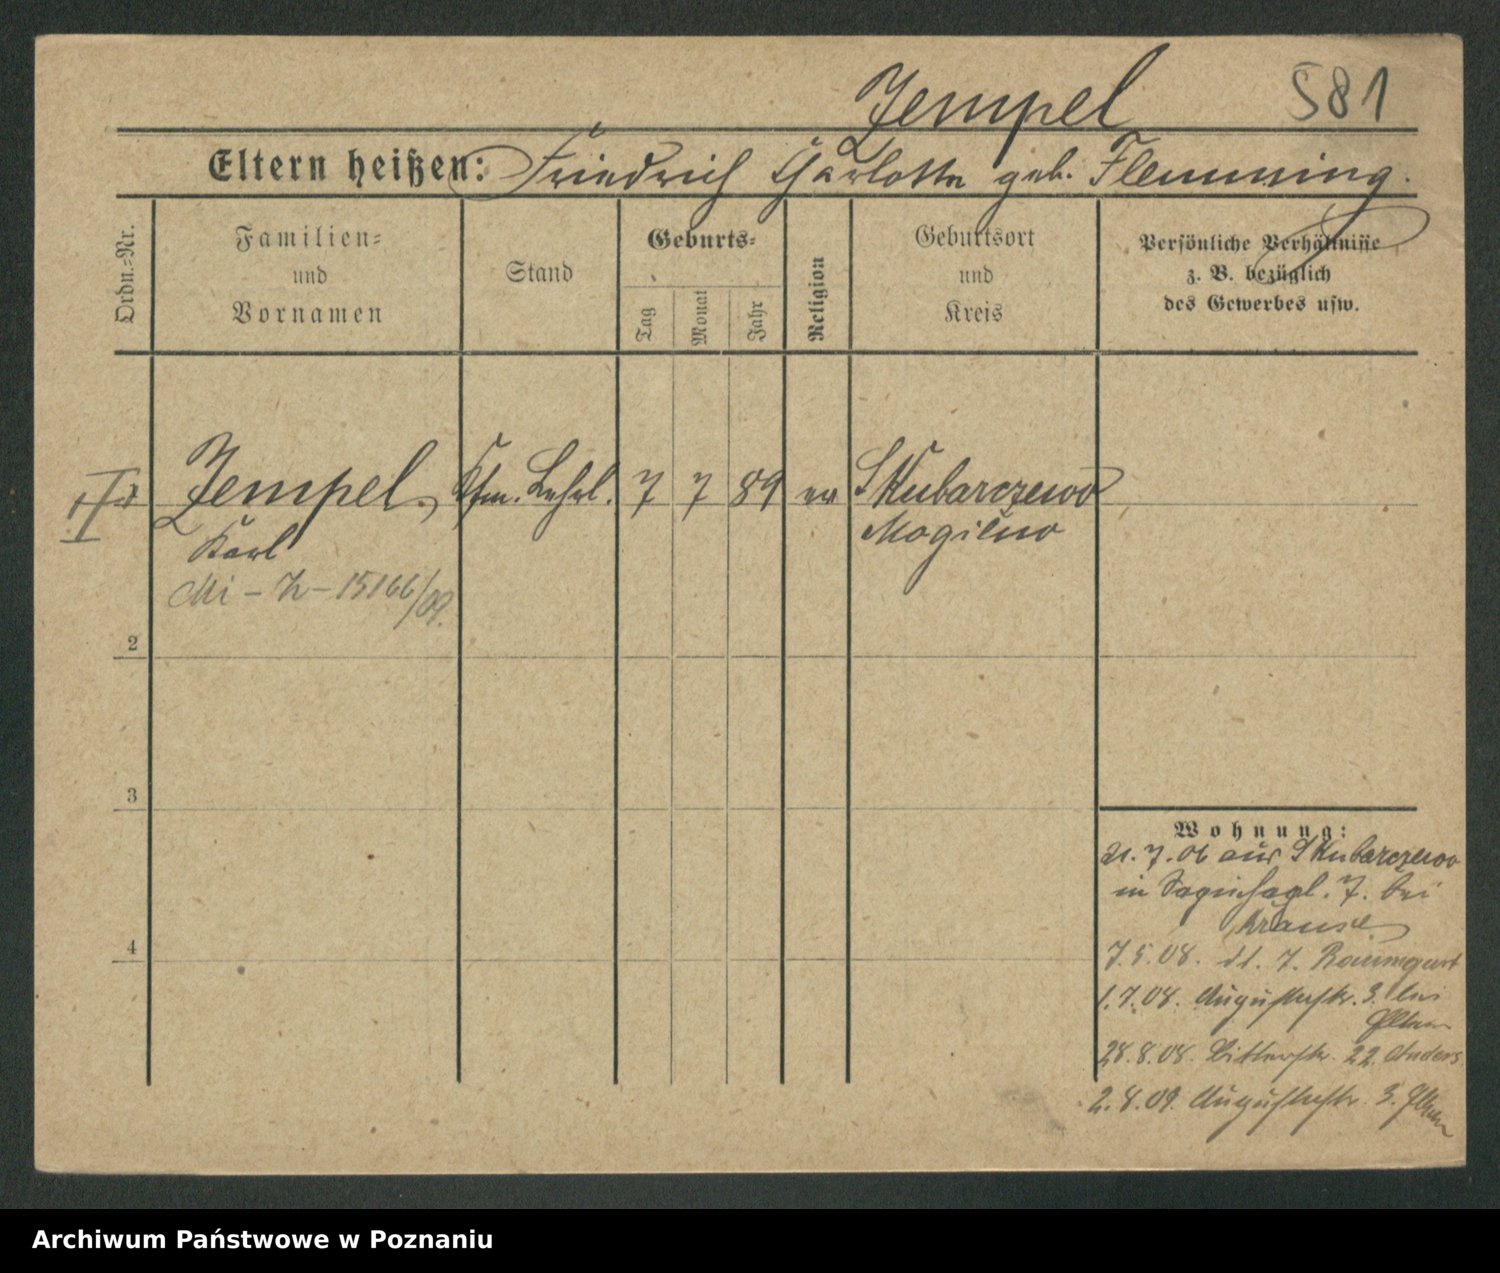 Jempel 581
Eltern heißen: Friedrich Charlotte geb. Flemming.
Ordn.=Nr.
Familien=
und
Vornamen
Stand
Geburts=
Tag
Monat
Jahr
Religion
Geburtsort
und
Kreis
Persönliche Verhältnisse
z. B. bezüglich
des Gewerbes usw.
Jempel, Kfm. Lehrl. 7 7 89 ev Skubarczewo
Karl Mogilno
Mi - - 15166/09.
2
3
4
Wohnung:
21.7.06 aus Skubarczewo
in 7. bei
Krause
7.5.08. dt. 7. Baumgart
1.7.08. Augustastr. 3. bei
28.8.08. Bitterstr. 22. Anders
2.8.09. Augustastr. 3.
Archiwum Państwowe w Poznaniu